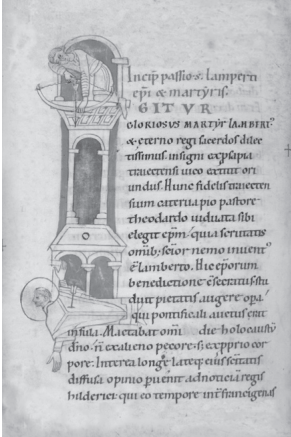 Incip passio s. lamperti
epi & martyris.
GITVR
GLORIOSVS MARTYR LAMBERT
& eterno regi sacerdos dilec
tissimus. insigni ex psapia
traiectensi uico extitit ori
undus. Hunc fidelis traiecten
sium caterua pio pastore
theodardo uiduata sibi
elegit epm / quia
omib; nemo inuent
e lamberto. Hic eporum
benedictione
pietatis augere
qui pontificali auctus erat
infula. Mactabat omi die holocaustu
dno. n ex alieno pecore. s; ex pprio cor
pore. Interea longe lateq; eius scitatis
diffusa opinio puenit ad noticia regis
hilderici. qui eo tempore int francigenas